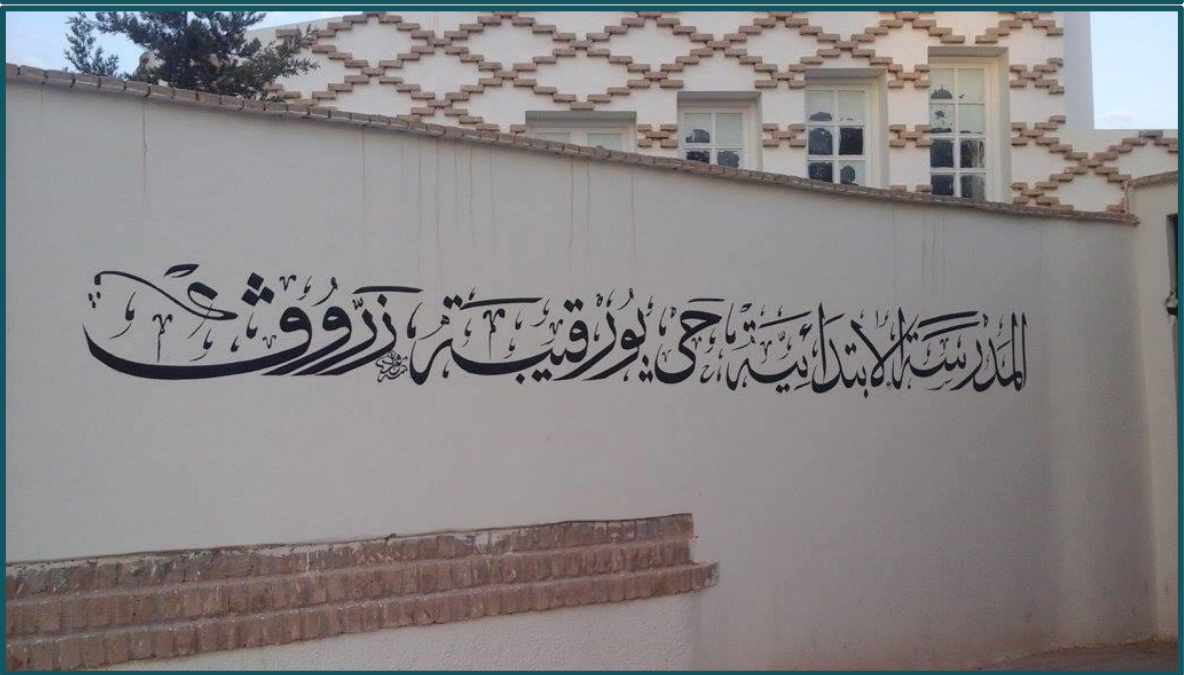 المدرسة الابتدائية حي بورقيبة زروق